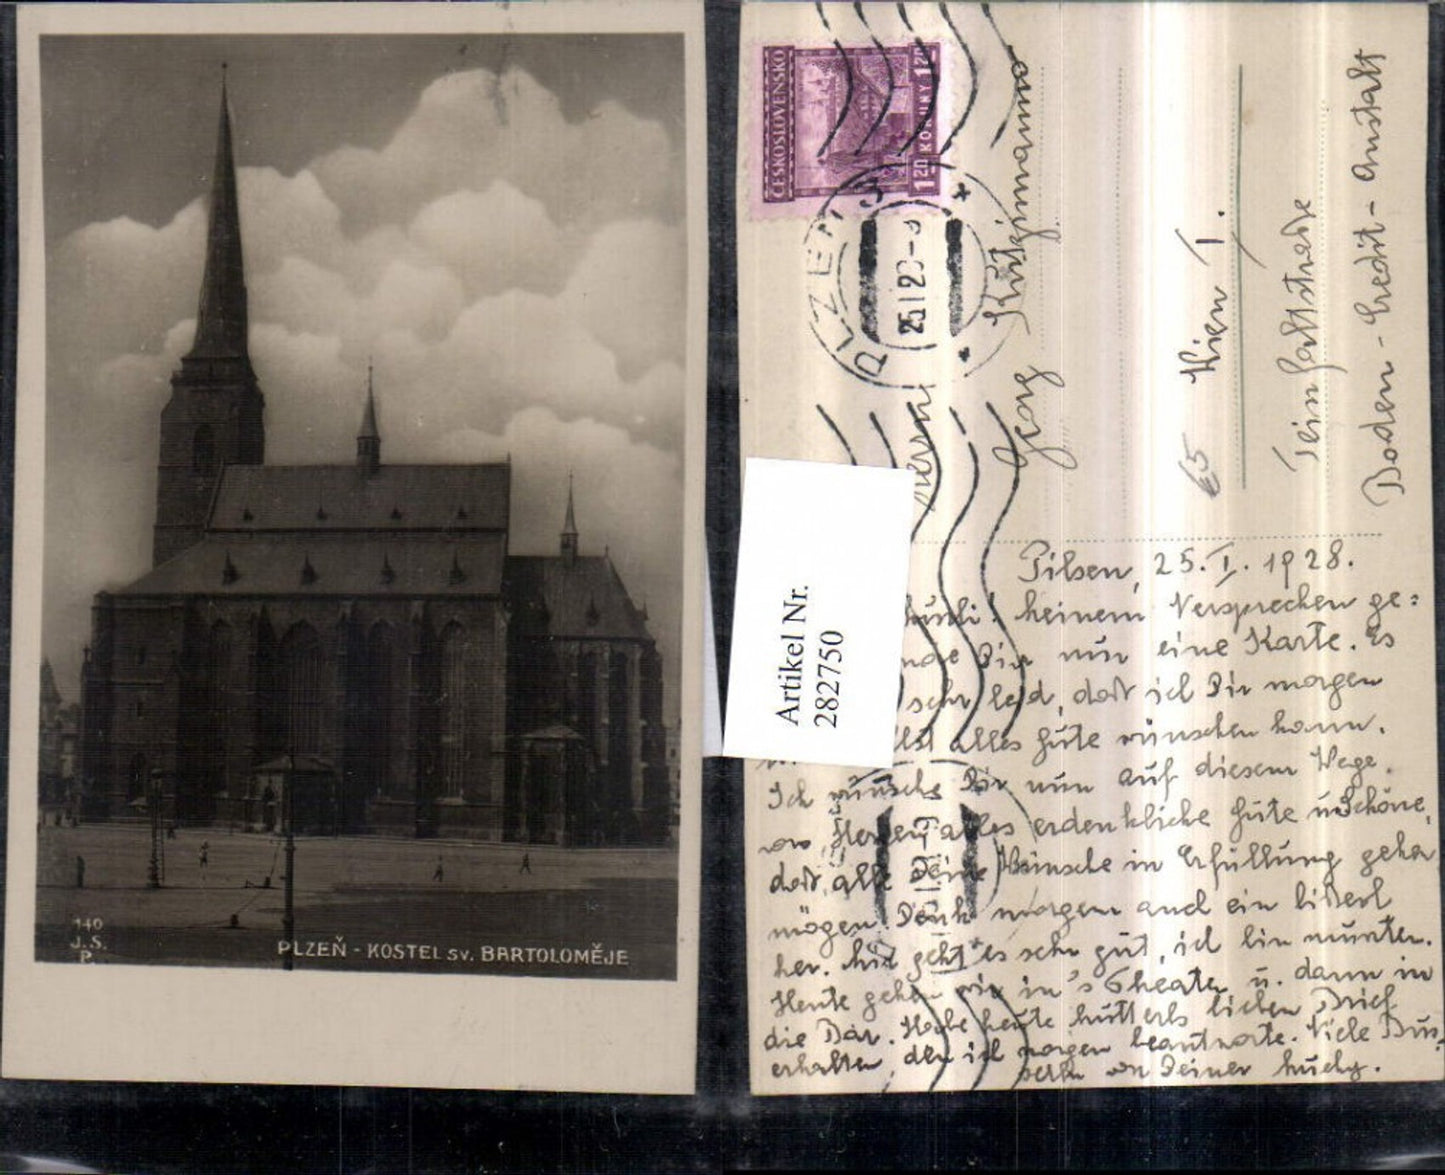 140
J. S.
P.
PLZEŇ - KOSTEL SV. BARTOLOMĚJE
ČESKOSLOVENSKO
1·20 KORUNY 1·20
PLZEŇ
25 I 28
Artikel Nr.
282750
Herrn
Georg
Wien I.
65
Teinfaltstraße
Boden-Credit-Anstalt
Pilsen, 25. I. 1928.
meinem Versprechen ge=
Dir nur eine Karte. Es
sehr leid, daß ich Dir morgen
alles Gute wünschen kann.
Ich wünsche Dir nun auf diesem Wege
von Herzen alles erdenkliche Gute u. Schöne,
daß alle Deine Wünsche in Erfüllung gehen
mögen. Denk morgen auch ein bisserl
her. Mir geht es sehr gut, ich bin munter.
Heute gehen wir in's Theater u. dann in
die Bar. Habe heute Mutterls lieben Brief
erhalten, den ich morgen beantworte. Viele Bus=
serln von Deiner